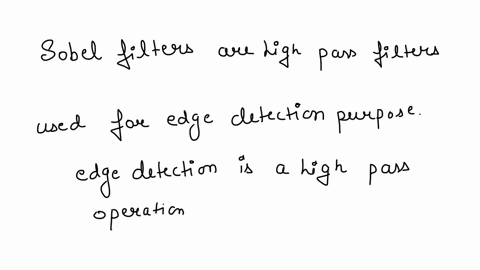 Sobel filters are high pass filters
used for edge detection purpose.
edge detection is a high pass
operation